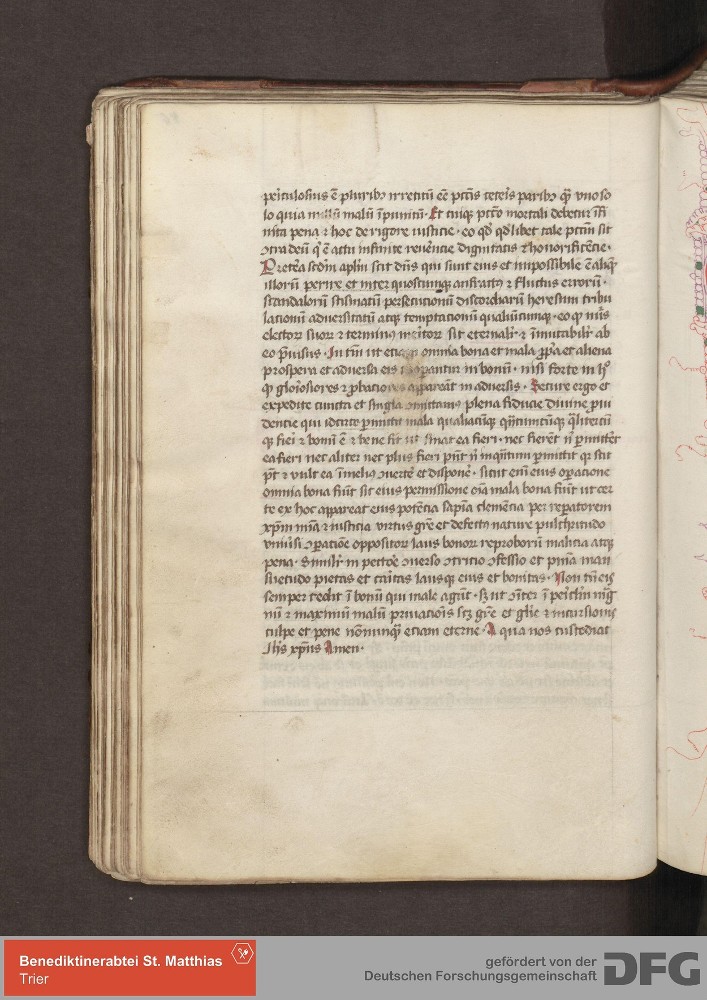 periculosius ē pluribꝰ irretitū eē pctīs ceteris paribꝰ qͣ̄ uno so
lo quia nullū malū īpunitū · Et cuiqꝫ pctō mortali debetur īfi
nita pena ⁊ hoc de rigore iusticie · eo qd̄ qd̄libet tale pctm̄ sit
ꝯtra deū qͥ ē actu infinite reuēncie dignitatis ⁊ honorificēcie ·
Pretēa scdm̄ aplm̄ scit dn̄s qui sunt eius et impossibile ē aliqͣ
illorū perire et inter quoscumqꝫ anfractꝰ ⁊ fluctus errorū ·
scandalorū scismatū persecutionū discordiarū heresum tribu
lationū aduersitatū atqꝫ temptacionū qualiūcumqꝫ · eo qͥ nūs
electorꝝ suorꝝ ⁊ terminus meritorꝝ sit eternalr̄ · ⁊ īmutabilr̄ ab
eo p̄uisus · In tm̄ ut etiam omnia bona et mala ꝓpͥa et aliena
prospera et aduersa eis coopantur in bonū · nisi forte in hͦ
qͥ gloͥosiores ⁊ ꝓbaciores appareāt in aduersis · Secure ergo et
expedite cuncta et singla ꝯmittamꝰ plena fiducie diuine ꝓui
dencie qui idcirco ꝑmittit mala qualiacūqꝫ qn̄tumcūqꝫ qͣlitercū
qꝫ fieri ⁊ bonū ē ⁊ bene fit ut sinat ea fieri · nec fierēt nͥ ꝑmitteret
ea fieri nec aliter nec plus fieri pn̄t nͥ inqͣntum ꝑmittit qͥ scit
pt̄ ⁊ vult ea ī melius ꝯuertē et disponē · sicut em̄ eius oꝑacione
omnia bona fiūt sic eius permissione oīa mala bona fiūt ut cer
te ex hoc appareat eius potēcia sapīa clemēcia per reparatorem
xpm̄ mīa ⁊ iusticia virtus gr̄e et defectꝰ nature pulchritudo
vniuersi ꝯparaciōe oppositorꝝ laus bonorꝝ reproborū malicia atqꝫ
pena · Similr̄ in pctōe ꝯuerso ꝯtricio ꝯfessio et pnīa man
suetudo pietas et caritas lausqꝫ eius et bonitas · Non tn̄ eis
semper cedit ī bonū qui male agūt · sꝫ ut ꝯit̄ ī peiꝰ
nū ⁊ maximū malū priuaciois scꝫ gr̄e et glīe ⁊ incursionis
culpe et pene nōnunqͣ̄ etiam eterne · A qua nos custodiat
Ihs̄ xpūs Amen ·
Benediktinerabtei St. Matthias
Trier
gefördert von der
Deutschen Forschungsgemeinschaft
DFG